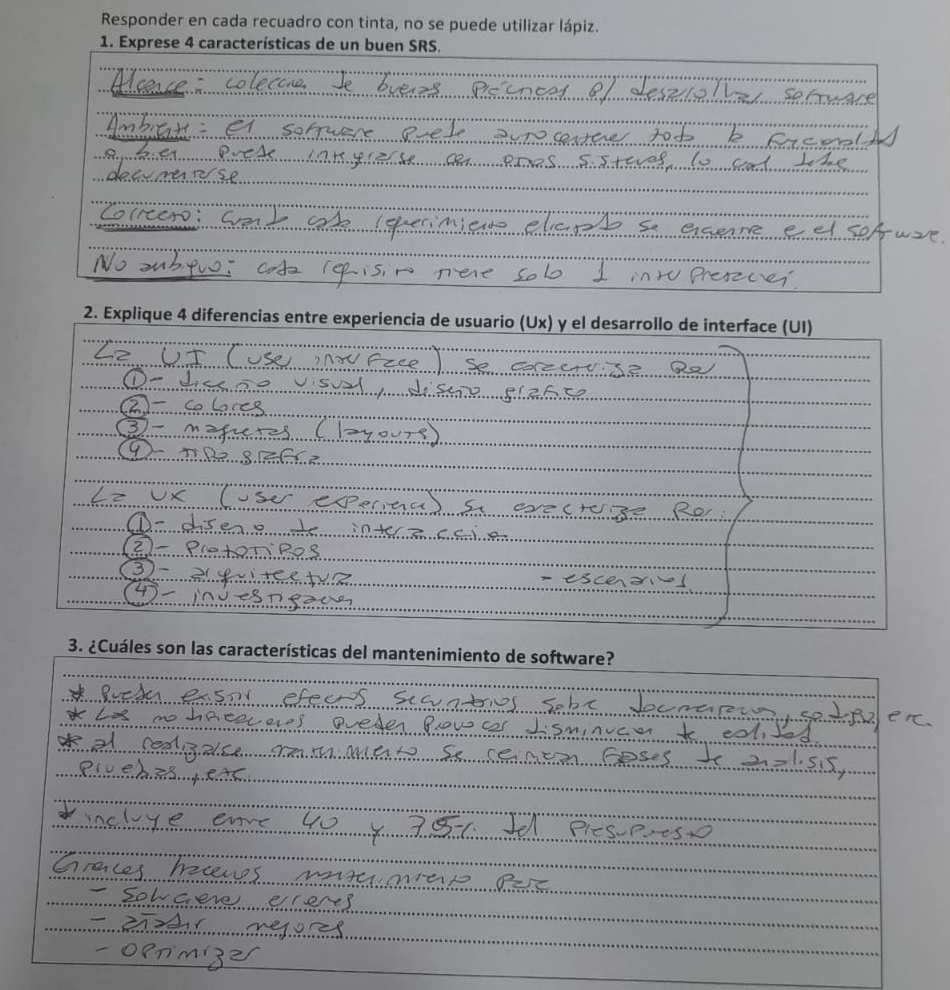 Responder en cada recuadro con tinta, no se puede utilizar lápiz.
1. Exprese 4 características de un buen SRS.
Alcance: coleccion de buenas prácticas p/ desarrollar software
Ambiente: el software puede autocontener toda la funcionalidad
o bien puede integrarse con otros sistemas, lo cual debe
documentarse
Correcto: cuando cada requerimiento elicitado se encuentre en el software.
No ambiguo: cada requisito tiene solo 1 interpretacion.
2. Explique 4 diferencias entre experiencia de usuario (Ux) y el desarrollo de interface (UI)
La UI (user interface) se caracteriza por
① - diseño visual, diseño grafico
② - colores
③ - maquetas (layouts)
④ - tipografia
La UX (user experience) se caracteriza por:
① - diseño de interaccion
② - Prototipos
③ - arquitectura - escenarios
④ - investigacion
3. ¿Cuáles son las características del mantenimiento de software?
* Pueden existir efectos secundarios sobre documentacion, codigo, etc.
* Las modificaciones pueden provocar disminucion de calidad.
* al realizarse mantenimiento se reinician fases de analisis,
pruebas, etc.
* incluye entre 40 y 75% del presupuesto
hacemos mantenimiento para
- Solucionar errores
- añadir mejoras
- optimizar